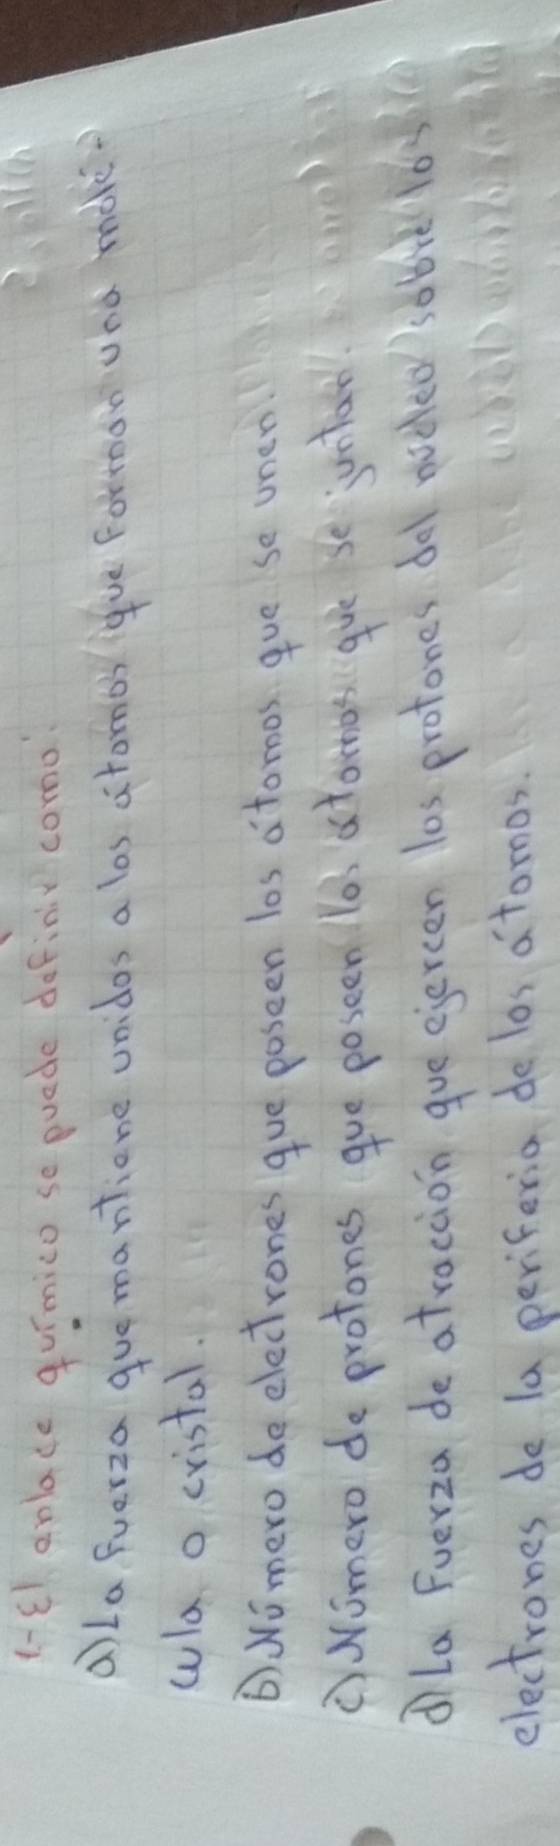 1.- El enlace químico se puede definir como:
a) La fuerza que mantiene unidos a los átomos que forman una molé-
cula o cristal.
b) Número de electrones que poseen los átomos que se unen.
c) Número de protones que poseen los átomos que se juntan.
d) La fuerza de atracción que ejercen los protones del núcleo sobre los
electrones de la periferia de los átomos.